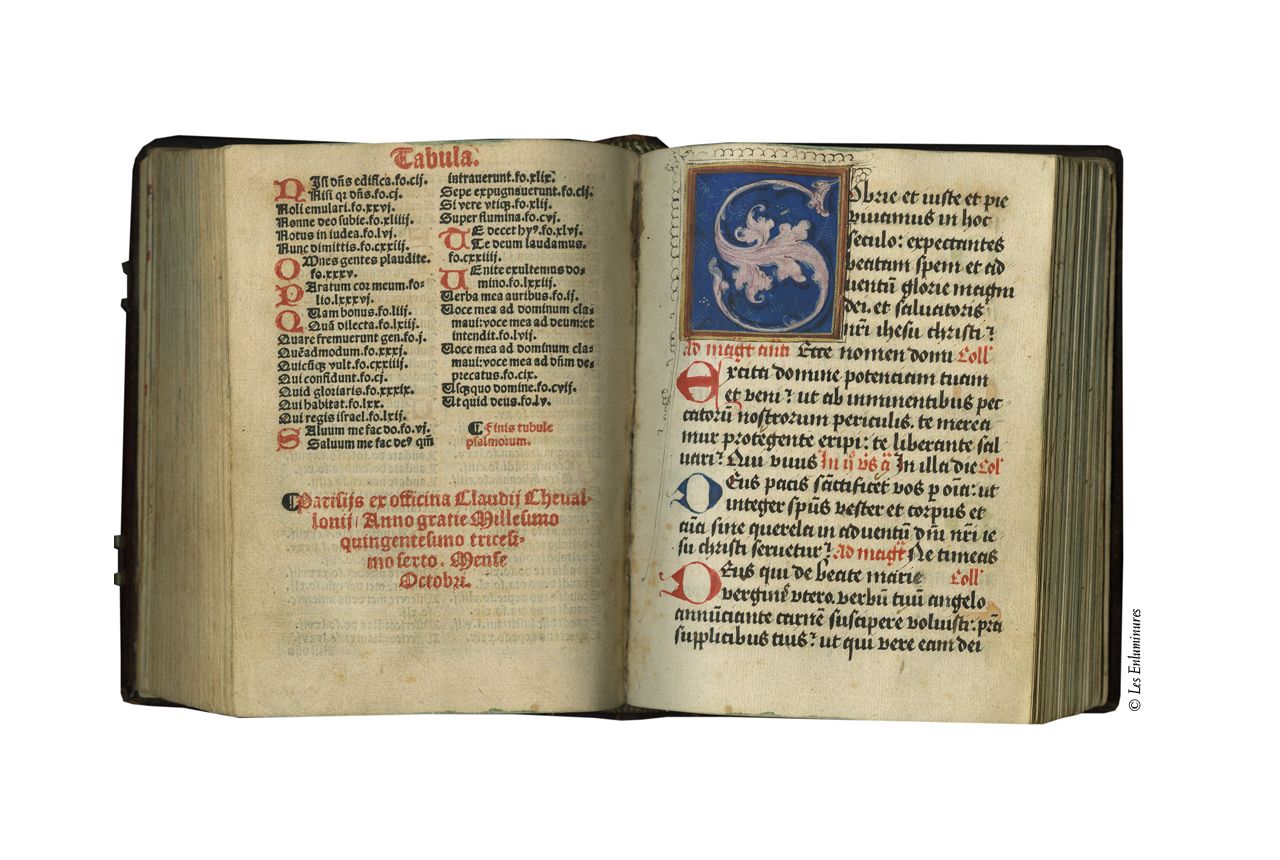 Tabula.
Nisi dñs edifica.fo.cij.
Nisi qz dñs.fo.cj.
Noli emulari.fo.xxvj.
Nonne deo subie.fo.xliiij.
Notus in iudea.fo.lvj.
Nunc dimittis.fo.cxxiij.
Omnes gentes plaudite.
fo.xxxv.
Paratum cor meum.fo-
lio.lxxxvj.
Quam bonus.fo.liij.
Quã dilecta.fo.lxiij.
Quare fremuerunt gen.fo.j.
Quẽadmodum.fo.xxxj.
Quicũqz vult.fo.cxxiiij.
Qui confidunt.fo.cj.
Quid gloriaris.fo.xxxix.
Qui habitat.fo.lxx.
Qui regis israel.fo.lxij.
Saluum me fac do.fo.vj.
Saluum me fac de⁹ qm̃
intrauerunt.fo.xlix.
Sepe expugnauerunt.fo.clj.
Si vere vtiqz.fo.xlij.
Super flumina.fo.cvj.
Te decet hy⁹.fo.xlvj.
Te deum laudamus.
fo.cxxiiij.
Uenite exultemus do-
mino.fo.lxxiij.
Uerba mea auribus.fo.ij.
Uoce mea ad dominum cla-
maui:voce mea ad deum:et
intendit.fo.lvij.
Uoce mea ad dominum cla-
maui:voce mea ad dñm de-
precatus.fo.cix.
Usqzquo domine.fo.cvij.
Ut quid deus.fo.lv.
¶ Finis tubule
psalmorum.
¶ Parisijs ex officina Claudij Cheual-
lonij/ Anno gratie Millesimo
quingentesimo tricesi-
mo sexto. Mense
Octobri.
Sobrie et iuste et pie
viuamus in hoc
seculo: expectantes
beatam spem et ad
uentũ glorie magni
dei. et saluatoris
nr̃i ihesu christi.
Ad magt̃ añ Ecce nomen domi Coll'
Excita domine potenciam tuam
et veni: ut ab inminentibus pec
catorũ nostrorum periculis. te merea
mur protegente eripi: te liberante sal
uari. Qui viuis In ij v̊s ã In illa die Col'
Deus pacis sãctificet vos p oĩa: ut
integer spũs vester et corpus et
aĩa sine querela in aduentũ dñi nr̃i ie
su christi seruetur. Ad magt̃ Ne timeas
Deus qui de beate marie Coll'
vergin⁹ vtero. verbũ tuũ angelo
annũciante carnẽ suscipere voluisti: pr̃a
supplicibus tuis: ut qui vere eam dei
© Les Enluminures